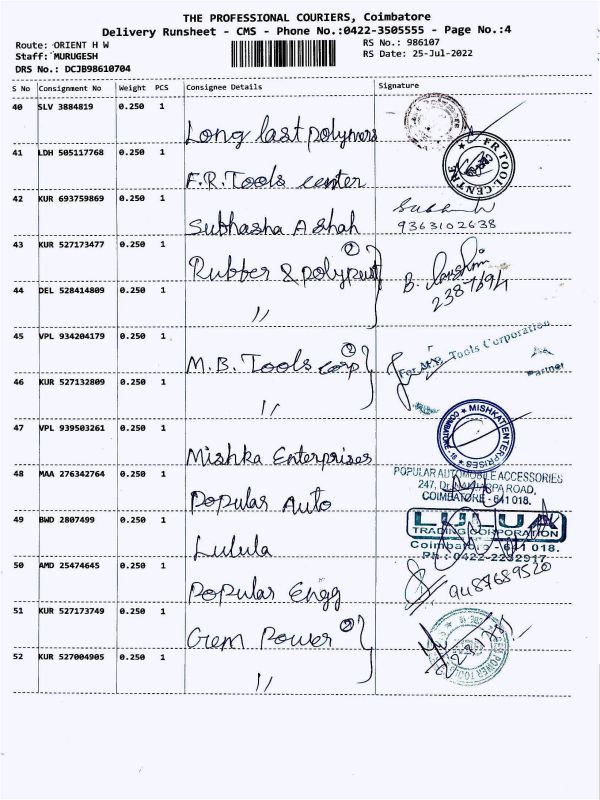 THE PROFESSIONAL COURIERS, Coimbatore
Delivery Runsheet - CMS - Phone No.:0422-3505555 - Page No.:4
Route: ORIENT H W
RS No.: 986107
Staff: MURUGESH
RS Date: 25-Jul-2022
DRS No.: DCJB98610704
S No Consignment No Weight PCS Consignee Details Signature
40 SLV 3884819 0.250 1
Long last polymers
41 LDH 505117768 0.250 1
F.R. Tools center
FR TOOL CENTRE
42 KUR 693759869 0.250 1
Subhasha A shah
9363102638
43 KUR 527173477 0.250 1
Rubber & polypust 2
B.
44 DEL 528414809 0.250 1
"
45 VPL 934204179 0.250 1
M.B. Tools corp 2
For M.B. Tools Corporation
Partner
46 KUR 527132809 0.250 1
"
47 VPL 939503261 0.250 1
Mishka Enterprises
MISHKAT ENTERPRISES COIMBATORE - 18
48 MAA 276342764 0.250 1
Popular Auto
POPULAR AUTOMOBILE ACCESSORIES
247, Dr. ROAD,
COIMBATORE - 641 018.
49 BWD 2807499 0.250 1
Lulula
LULUA
TRADING CORPORATION
Coimbatore - 641 018.
Ph : 0422-2232917
50 AMD 25474645 0.250 1
Popular Engg
9487689520
51 KUR 527173749 0.250 1
Gem Power 2
POWER TOOLS
52 KUR 527004905 0.250 1
"